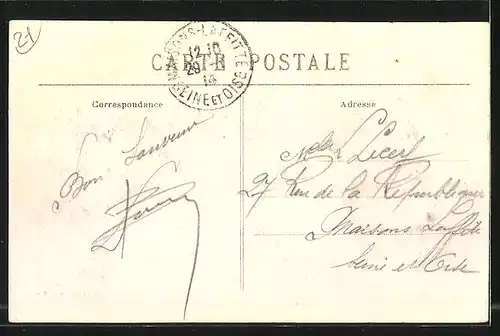 21
MAISONS-LAFFITTE
12 10
29
14
SEINE ET OISE
CARTE POSTALE
Correspondance
Adresse
Bon Souvenir
Lecerf
27 Rue de la République
Maisons Laffitte
Seine et Oise